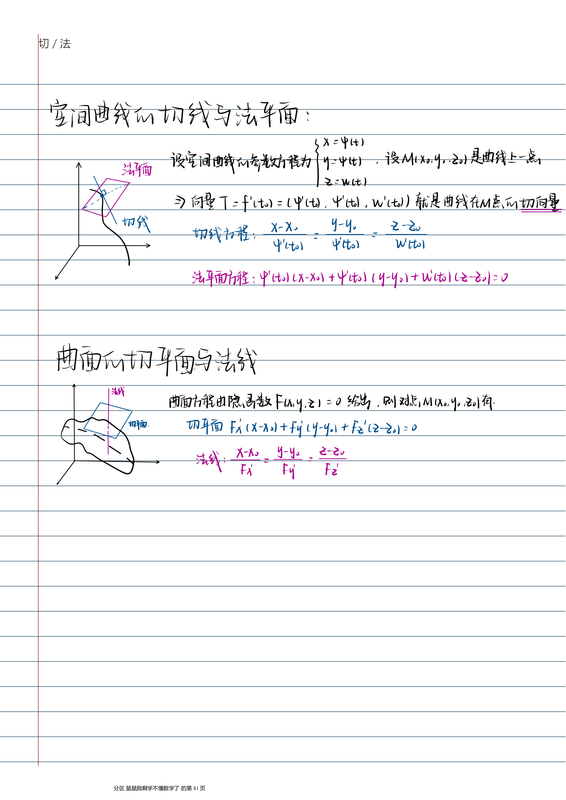 切 / 法
空间曲线的切线与法平面：
设空间曲线的参数方程为 { x = φ(t) y = ψ(t) z = w(t) , 设M(x₀, y₀, z₀)是曲线上一点,
法平面
切线
⇒ 向量T = f'(t₀) = (φ'(t₀), ψ'(t₀), w'(t₀)) 就是曲线在M点的切向量
切线方程: (x-x₀)/φ'(t₀) = (y-y₀)/ψ'(t₀) = (z-z₀)/w'(t₀)
法平面方程: φ'(t₀)(x-x₀) + ψ'(t₀)(y-y₀) + w'(t₀)(z-z₀) = 0
曲面的切平面与法线
法线
切平面
曲面方程由隐函数 F(x,y,z) = 0 给出, 则对点M(x₀,y₀,z₀)有
切平面 Fx'(x-x₀) + Fy'(y-y₀) + Fz'(z-z₀) = 0
法线: (x-x₀)/Fx' = (y-y₀)/Fy' = (z-z₀)/Fz'
分区 鼠鼠我啊学不懂数学了 的第 81 页